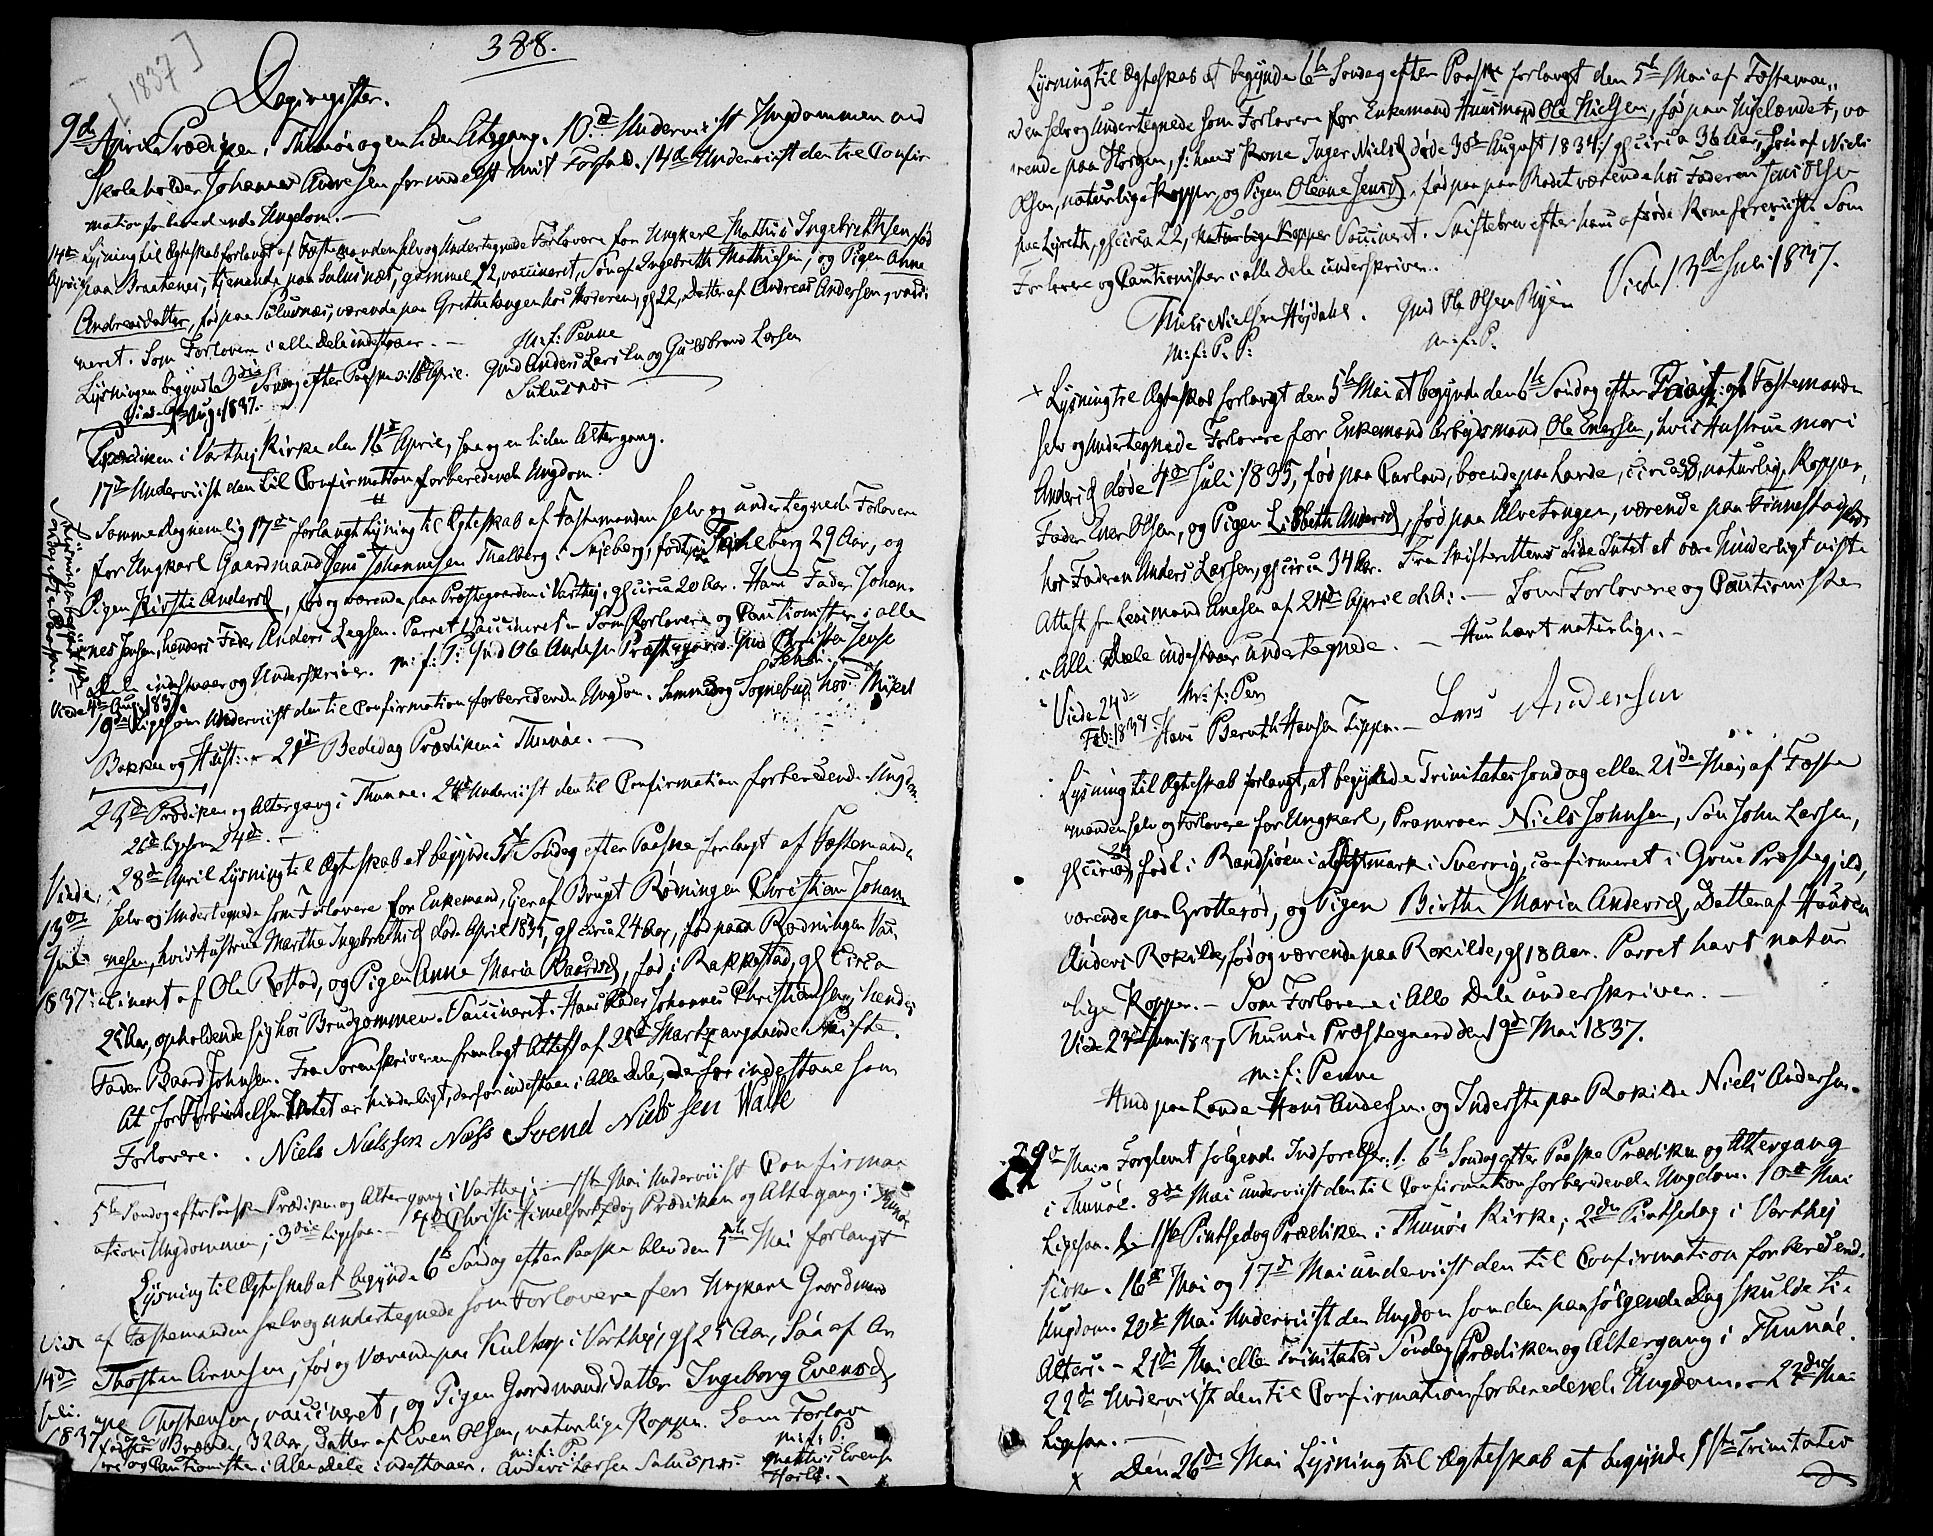 388.
[1837]
Dagregister.
9de April Prædiken i Thunøe og en liden Altergang. 10de Underviist Ungdommen ved
Skoleholder Johannes Andresen formedelst mit Forfald. 14de Underviist den til Confir
mation forberedende Ungdom. —
14de Lysning til Ægteskab forlangt af Fæstemanden selv og Undertegnede Forlovere for Ungkarl Mathis Ingebrethsen, fød
April paa Braatenes, tjenende paa Sulusnæs, gammel 22, vaccineret, Søn af Ingebreth Mathisen, og Pigen Anne
Andreasdatter, fød paa Sulusnæs, værende paa Grethehaugen hos Moderen, gl 22, Datter af Andreas Andersen, vacci
neret. Som Forlovere i alle Dele indestaaer. —
M: f: Penne
Lysningen begyndte 3die Søndag efter Paaske April. Gmd Anders Larsen og Gulbrand Larsen
Sulusnæs
Viede Aug: 1837.
Prædiken i Varthej Kirke den 16de April, saa og en liden Altergang.
17de Underviist den til Confirmation forberedende Ungdom.
Samme Dag nemlig 17de forlangt Lysning til Ægteskab af Fæstemanden selv og undertegnede Forlovere
for Ungkarl Gaardmand Jens Johannesen Thalberg i Skjeberg, født paa berg 29 Aar, og
Pigen Kirsti Andersd, fød og værende paa Præstegaarden i Varthej, gl circa 20 Aar. Hans Fader Johan
nes Jensen, hendes Fader Anders Larsen. Parret vaccineret. — Som Forlovere og Cautionister i alle
Dele indestaaer og Underskriver. m: f: P: Gmd Ole Andersen Præstegaard. Gmd Christen Jense
Viede Aug: 1837
19de Ligesom Underviist den til Confirmation forberedende Ungdom. Samme dag Sognebud hos Mikel
Bakken og Hust: — 21de Bededag Prædiken i Thunøe. —
23de Prædiken og Altergang i Thunøe. 24de Underviist den til Confirmation forberedende Ungdom.
26de ligesom 24de. —
28de April Lysning til Ægteskab at begynde 5te Søndag efter Paaske forlangt af Fæstemanden
Viede
13de
Juli
1837:
selv og Undertegnede som Forlovere for Enkemand, Ejer af Brugt Rødningen Christian Johan
nesen, hvis Hustrue Marthe Ingebrethsd døde April 1835, gl circa 24 Aar, fød paa Rødningen Vac
cineret af Ole Rostad, og Pigen Anne Maria Baardsd, fød i Rakkestad, gl Circa
25 Aar, opholdende sig hos Brudgommen. Vaccineret. Hans Fader Johannes Christiansen, hendes
Fader Baard Johnsen. Fra Sorenskriveren fremlagt Attest af 25de Marts angaaende Skifte.
At for Forbindelsen Intet er hinderligt, derfor indestaae i Alle Dele, derfor indestaae som
Forlovere. Niels Nielssen Næss Svend Nielssen Walle
5te Søndag efter Paaske Prædiken og Altergang i Varthej. — 1ste Mai Underviist Confirma
tions Ungdommen; 3die ligesaa. — 4de Christi Himelfartsdag Prædiken og Altergang i Thunøe
Lysning til Ægteskab at begynde 6te Søndag efter Paaske blev den 5te Mai forlangt
Viede
14de
Juli
1837
af Fæstemanden selv og undertegnede som Forlovere for Ungkarl Gaardmand
Thosten Arnesen, fød og Værende paa Kultop i Varthej, gl 25 Aar, Søn af Ar
ne Thostensen, vaccineret, og Pigen Gaardmandsdatter Ingeborg Evensd,
fød Brænde, 32 Aar, Datter af Even Olsen, naturlige Kopper. Som Forlove
re og Cautionister i Alle Dele indestaaer. m: f: P. Anders Larsen Sulusnæs. m: f: P: Mathis Evensen
Lysning til Ægteskab at begynde 6te Søndag efter Paaske forlangt den 5te Mai af Fæsteman
den selv og Undertegnede som Forlovere for Enkemand Huusmand Ole Nielsen, fød paa Huselandet, væ
rende paa Horgen, /: hans Kone Inger Nielsd døde 30te August 1834 :/ gl circa 36 Aar, Søn af Niels
Olsen, naturlige Kopper, og Pigen Oleane Jensd, fød paa Rødet værende hos Faderen Jens Olsen
paa Lyseth, gl circa 22, naturlige Kopper Vaccineret. Skiftebrev efter hans afdøde Kone foreviist. Som
Forlovere og Cautionister i alle Dele underskriver. Viede 13de Juli 1837.
Niels Nielsen Højdahl. Gmd Ole Olsen Ryen
M: f: P. P: M: f: P.
+ Lysning til Ægteskab forlangt den 5te Mai at begynde den 6te Søndag efter af Fæstemanden
selv og Undertegnede Forlovere for Enkemand Arbejdsmand Ole Enersen, hvis Hustrue Mari
Andersd døde 4de Juli 1835, fød paa Carland, boende paa Lande, circa 58, naturlige Kopper,
Fader Ener Olsen, og Pigen Lisbeth Andersd, fød paa Elvetangen, værende paa Finnestad
hos Faderen Anders Larsen, gl circa 34 Aar. Fra Skifterettens Side Intet at være Hinderligt viste
Attest fra Lensmand Anesen af 24de April d: A: — Som Forlovere og Cautionister
i Alle Dele indestaaer undertegnede. — Hun havt naturlige. —
Viede 24de M: f: Pen
Feb: 1838 Hans Bernth Hansen Lippa. — Lars Andersen
Lysning til Ægteskab forlangt, at begynde Trinitatis søndag eller 21de Mai, af Fæste
manden selv og Forlovere for Ungkarl, Pramroer Niels Johnsen, Søn John Larsen,
gl circa 24, født i Randsjøen i Hedmark i Sverrig, confirmeret i Grue Præstegjeld,
værende paa Grotterød, og Pigen Birthe Maria Andersd, Datter af
Anders Rokilde, fød og værende paa Rokilde, gl 18 Aar. Parret havt natur
lige Kopper. — Som Forlovere i Alle Dele underskriver. —
Viede 23de Juni 1837 Thunøe Præstegaard den 9de Mai 1837.
m: f: Penne
Hmd paa Lande Hans Andersen og Inderste paa Rokilde Niels Andersen.
29de Mai. Forglemt følgende Indførelser: 1. 6te Søndag efter Paaske Prædiken og Altergang
i Thunøe. 8de Mai underviist den til Confirmation forberedende Ungdom. 10de Mai
Ligesaa. 1ste Pintsedag Prædiken i Thunøe Kirke, 2den Pintsedag i Varthej
Kirke. 16de Mai og 17de Mai underviist den til Confirmation forberedende
Ungdom. 20de Mai Underviist den Ungdom som den paafølgende Dag skulde til
Alters. — 21de Mai eller Trinitatis Søndag Prædiken og Altergang i Thunøe.
22de Underviist den til Confirmation forberedende Ungdom. — 24de Mai
Ligesaa. —
Den 26de Mai Lysning til Ægteskab at begynde 1ste Trinitatis